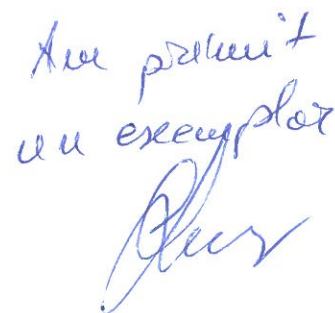 Am primit
un exemplar